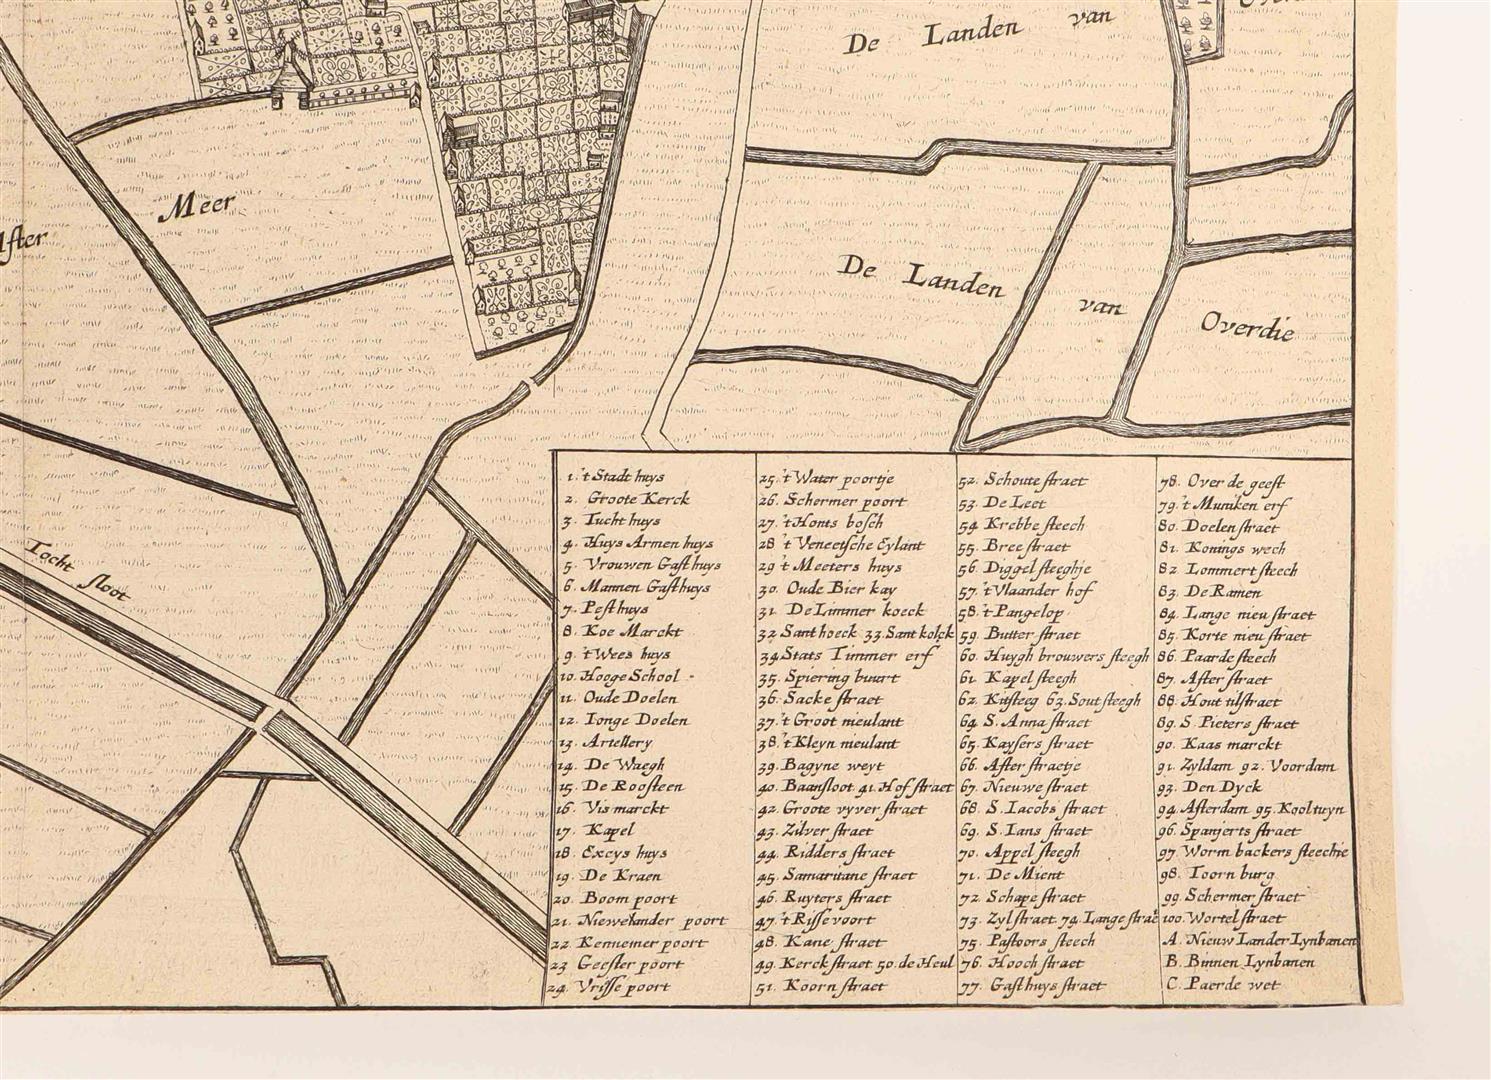 De Landen van
Meer
After
De Landen van Overdie
Tocht sloot
1. 't Stadt huys
2. Groote Kerck
3. Tucht huys
4. Huys Armen huys
5. Vrouwen Gasthuys
6. Mannen Gasthuys
7. Pesthuys
8. Koe Marckt
9. 't Wees huys
10. Hooge School
11. Oude Doelen
12. Ionge Doelen
13. Artellery
14. De Waegh
15. De Roosteen
16. Vis marckt
17. Kapel
18. Excys huys
19. De Kraen
20. Boom poort
21. Niewelander poort
22. Kennemer poort
23. Geester poort
24. Vrisse poort
25. 't Water poortje
26. Schermer poort
27. 't Honts bosch
28. 't Veneetsche Eylant
29. 't Meeters huys
30. Oude Bier kay
31. De Limmer koeck
32. Santhoeck 33. Sant kolck
34. Stats Timmer erf
35. Spiering buurt
36. Sacke straet
37. 't Groot nieulant
38. 't Kleyn nieulant
39. Bagyne weyt
40. Baansloot 41. Hof straet
42. Groote vyver straet
43. Zilver straet
44. Ridders straet
45. Samaritane straet
46. Ruyters straet
47. 't Risse voort
48. Kane straet
49. Kerck straet 50. de Heul
51. Koorn straet
52. Schoute straet
53. De Leet
54. Krebbe steech
55. Bree straet
56. Diggel steeghje
57. 't Vlaander hof
58. 't Pangelop
59. Butter straet
60. Huygh brouwers steegh
61. Kapel steegh
62. Kitsteeg 63. Sout steegh
64. S. Anna straet
65. Kaysers straet
66. After straetje
67. Nieuwe straet
68. S. Iacobs straet
69. S. Ians straet
70. Appel steegh
71. De Mient
72. Schape straet
73. Zyl straet 74. Lange straet
75. Pastoors steech
76. Hooch straet
77. Gasthuys straet
78. Over de geest
79. 't Muniken erf
80. Doelen straet
81. Konings wech
82. Lommert steech
83. De Ramen
84. Lange nieu straet
85. Korte nieu straet
86. Paarde steech
87. After straet
88. Hout tilstraet
89. S. Pieters straet
90. Kaas marckt
91. Zyldam 92. Voordam
93. Den Dyck
94. Afterdam 95. Kooltuyn
96. Spanjerts straet
97. Worm backers steechie
98. Toorn burg
99. Schermer straet
100. Wortel straet
A. Nieuw Lander Lynbanen
B. Binnen Lynbanen
C. Paerde wet